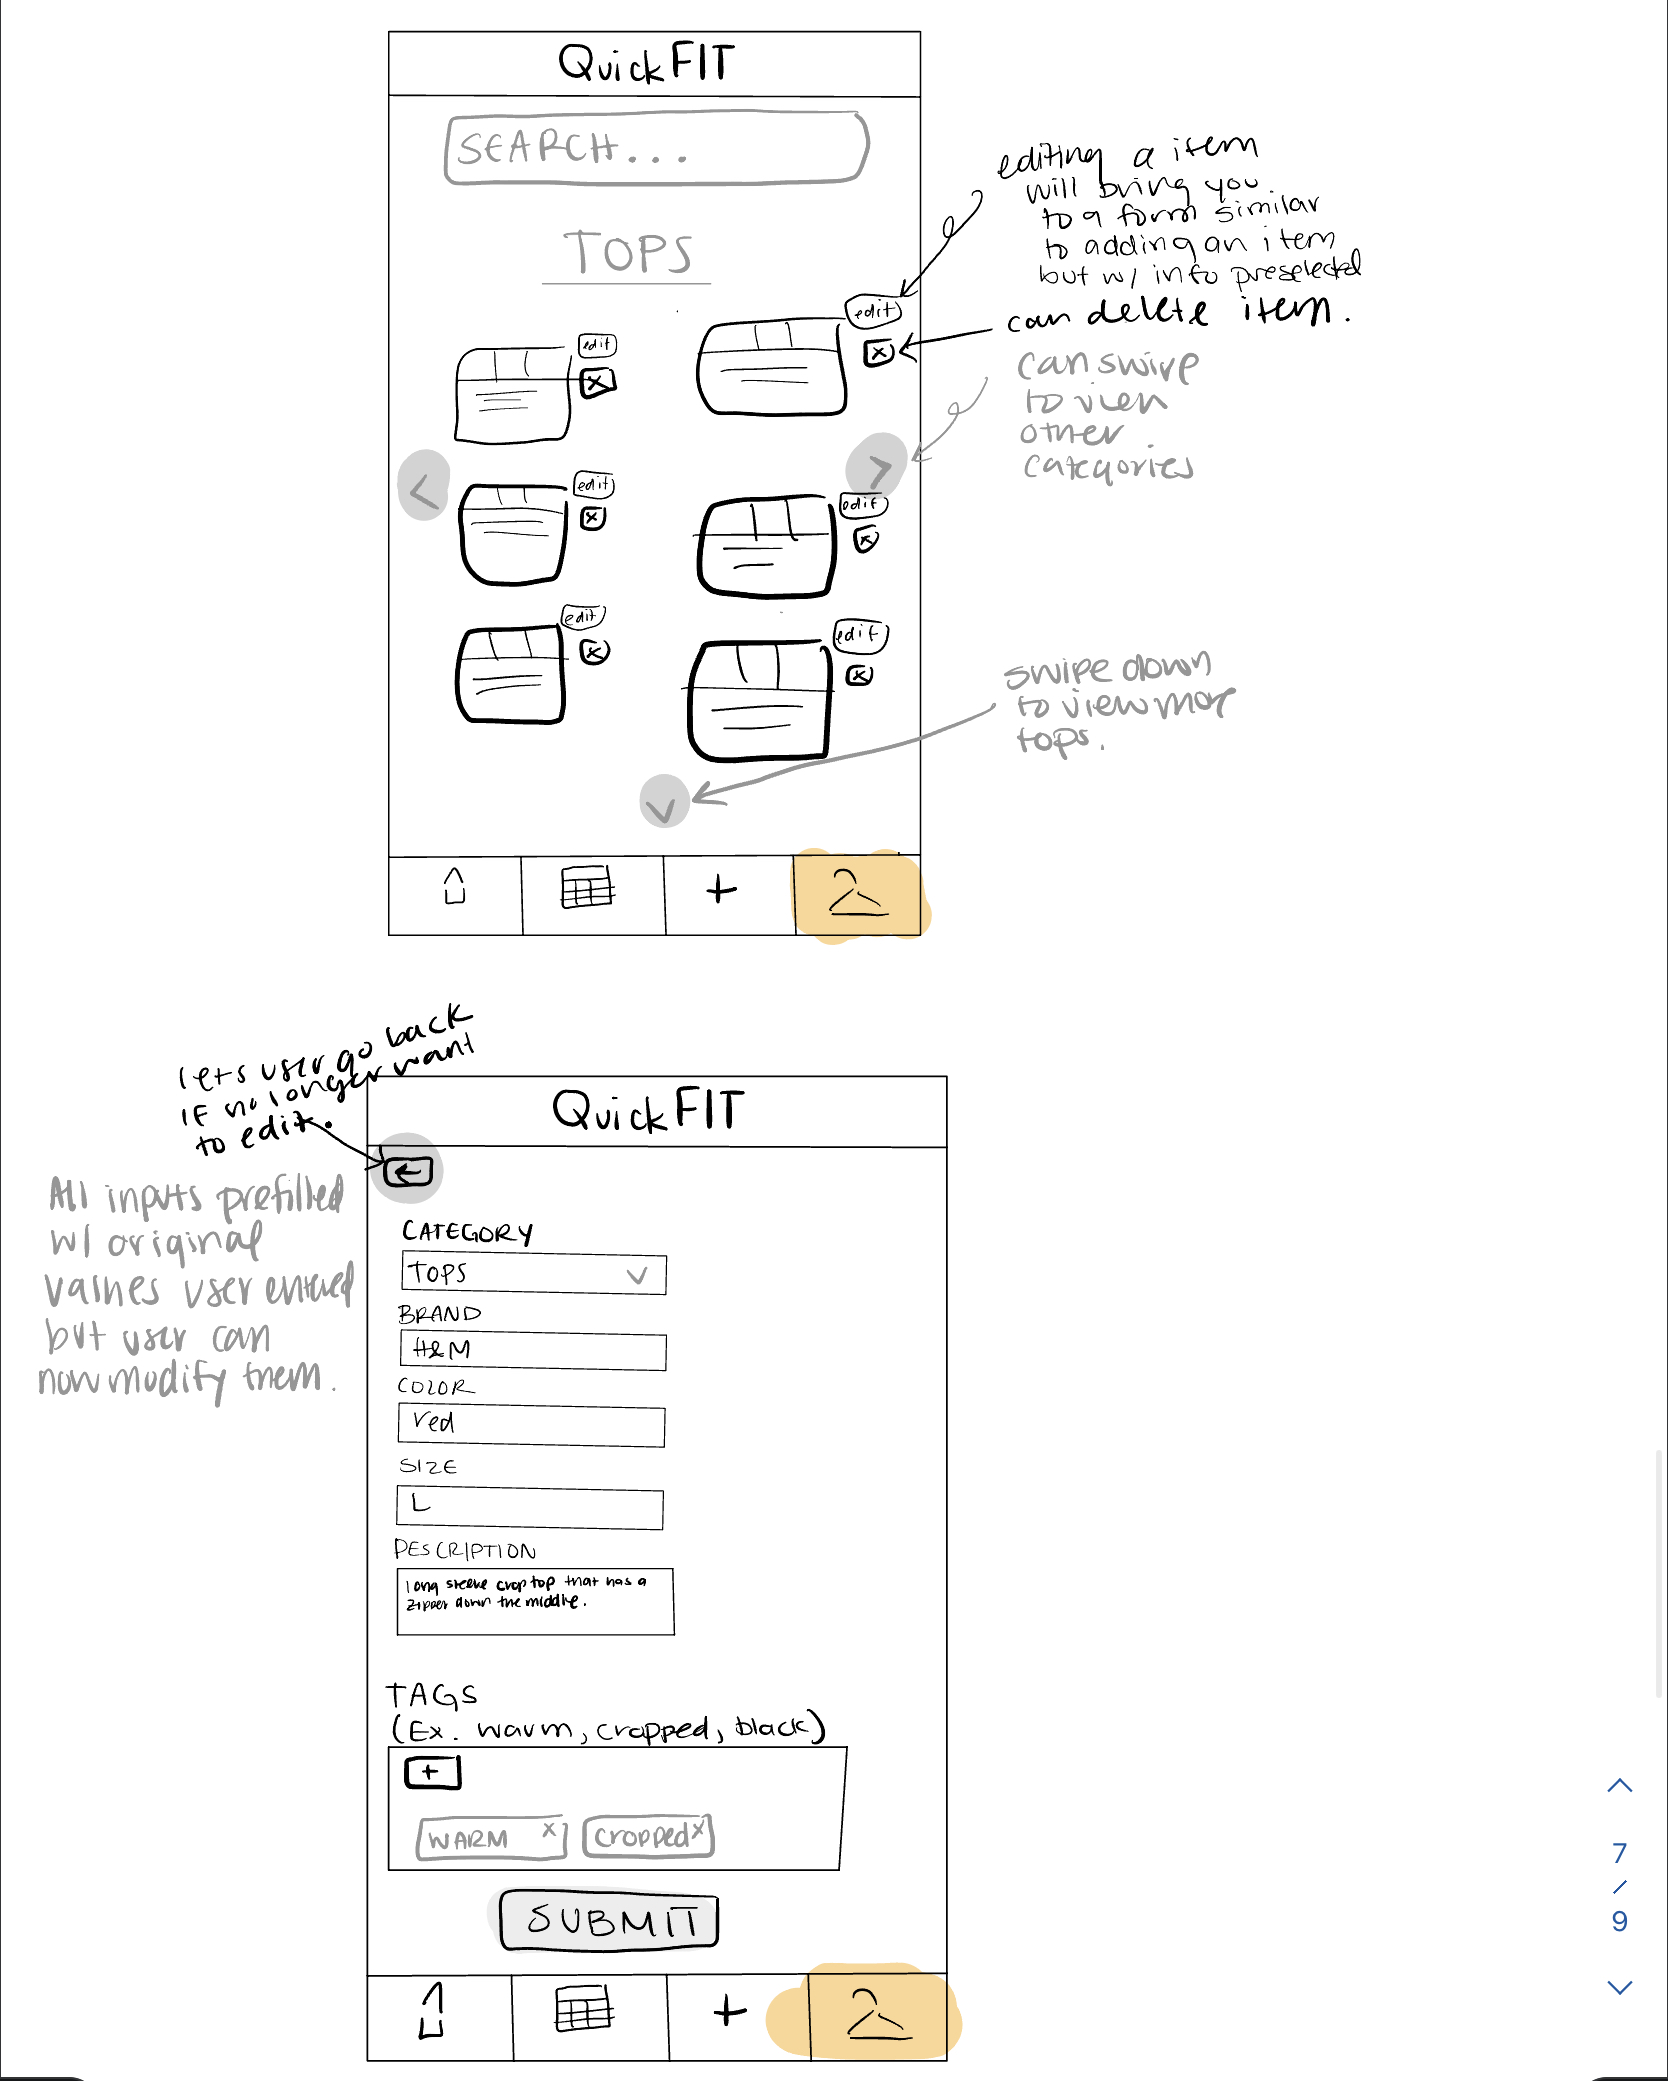 QuickFIT
SEARCH...
TOPS
edit
edit
x
x
edit
x
edit
x
edit
x
edit
x
editing a item
will bring you
to a form similar
to adding an item
but w/ info preselected
can delete item.
can swipe
to view
other
categories
swipe down
to view more
tops.
+
lets user go back
if no longer want
to edit.
All inputs prefilled
w/ original
values user entered
but user can
now modify them.
QuickFIT
CATEGORY
TOPS
BRAND
H&M
COLOR
red
SIZE
L
DESCRIPTION
long sleeve crop top that has a
zipper down the middle.
TAGS
(Ex. warm, cropped, black)
+
WARM x
cropped x
SUBMIT
+
7
/
9